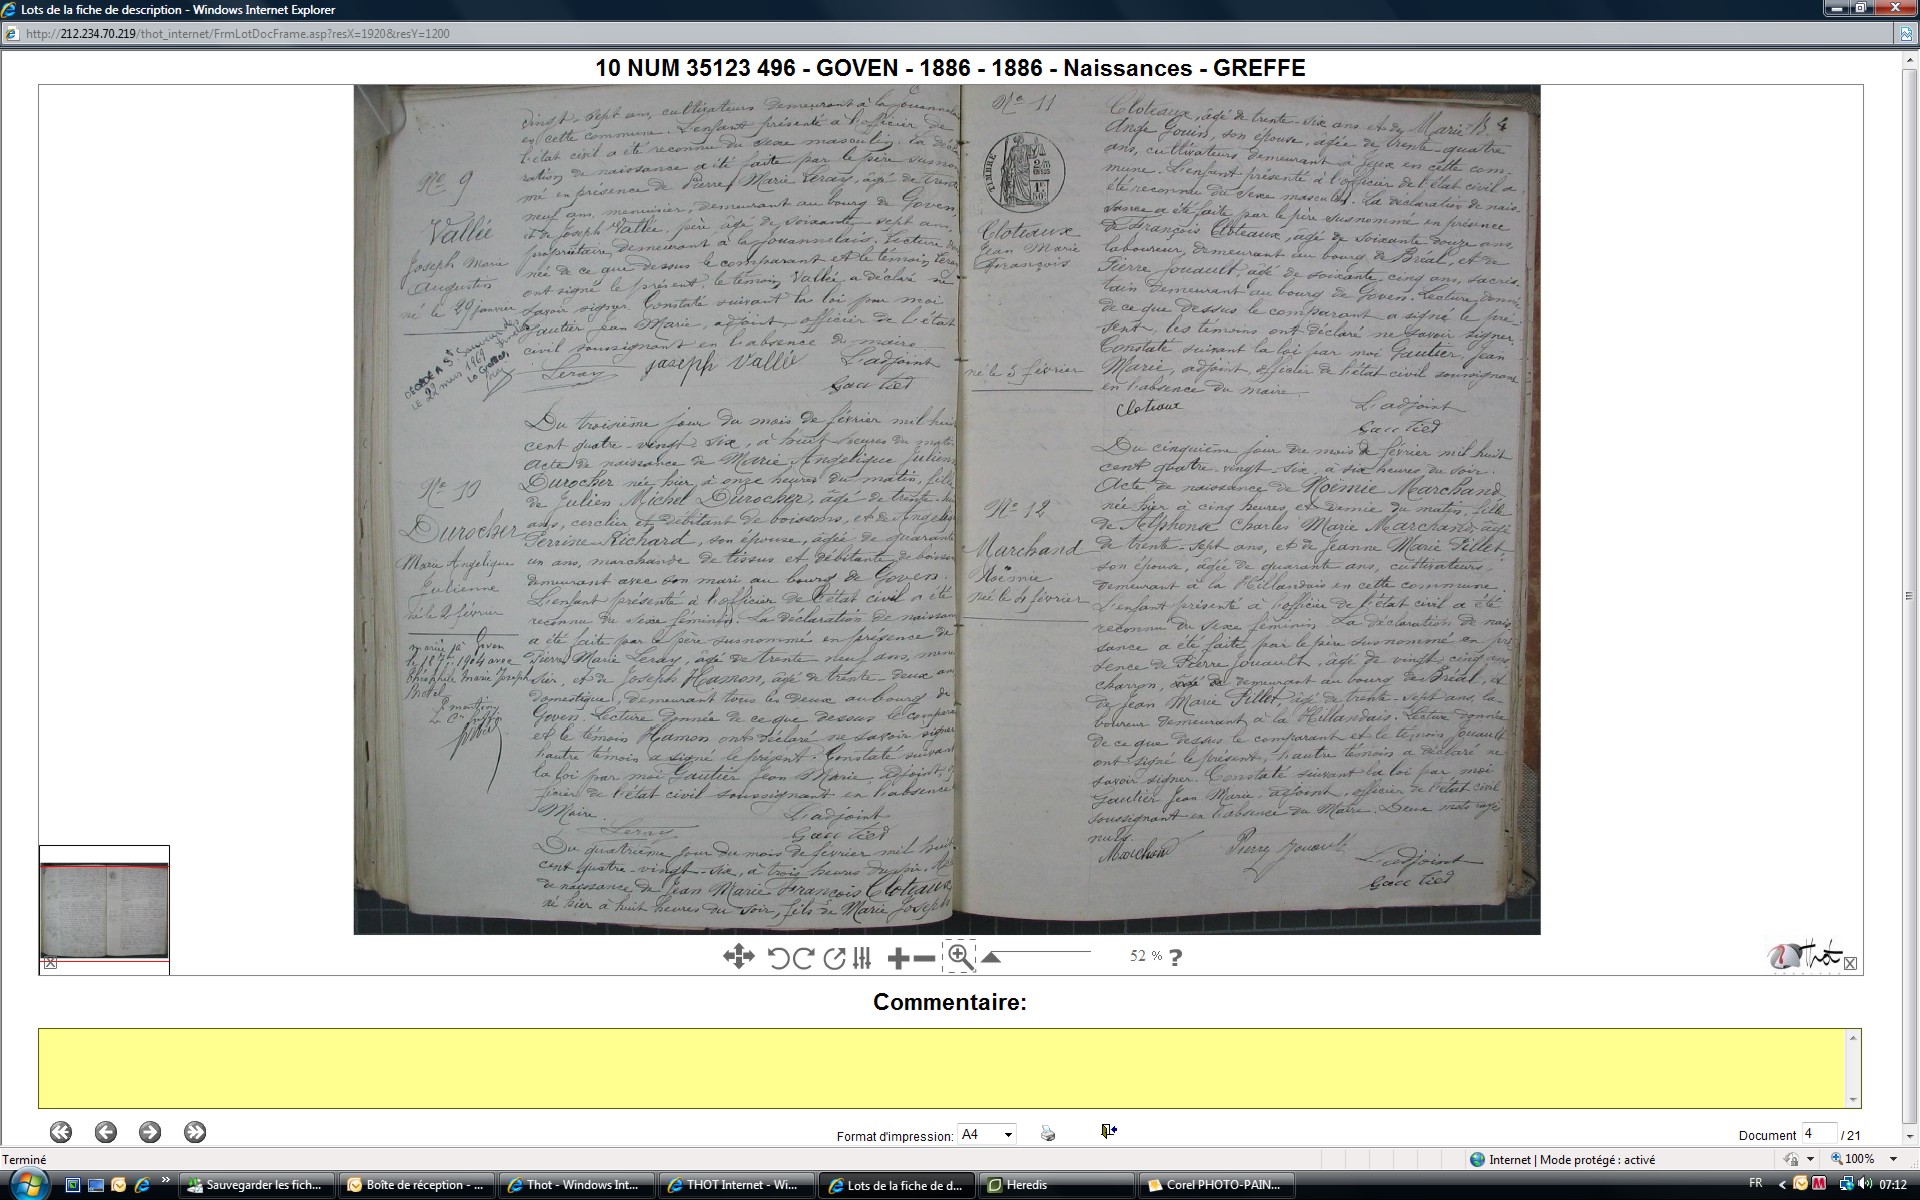 Lots de la fiche de description - Windows Internet Explorer
http://212.234.70.219/thot_internet/FrmLotDocFrame.asp?resX=1920&resY=1200
10 NUM 35123 496 - GOVEN - 1886 - 1886 - Naissances - GREFFE
vingt-sept ans, cultivateurs demeurant à la Jouannelais
en cette commune. L'enfant présenté à l'officier de
l'état civil a été reconnu du sexe masculin. La décla
ration de naissance a été faite par le père susnom
mé en présence de Pierre Marie Leray, âgé de trente
neuf ans, menuisier, demeurant au bourg de Goven,
et de Joseph Vallée, père, âgé de soixante-sept ans,
propriétaire, demeurant à la Jouannelais. Lecture don
née de ce que dessus le comparant et le témoin Leray
ont signé le présent, le témoin Vallée a déclaré ne
savoir signer. Constaté suivant la loi par moi
Gautier Jean Marie, adjoint, officier de l'état
civil soussignant en l'absence de maire.
Leray Joseph Vallée L'adjoint
Gautier
No 9
Vallée
Joseph Marie
Augustin
né le 29 janvier
DÉCÉDÉ A St Sauveur des Landes
LE 22 mars 1961
Le Greffier,
No 10
Durocher
Marie Angélique
Julienne
née le 2 février
mariée à Goven
le 1904 avec
Théophile Marie Joseph
Du troisième jour du mois de février mil huit
cent quatre-vingt-six, à huit heures du matin
Acte de naissance de Marie Angélique Julienne
Durocher née hier, à onze heures du matin, fille
de Julien Michel Durocher, âgé de trente-huit
ans, cerclier et débitant de boissons, et de Angélique
Perrine Richard, son épouse, âgée de quarante
un ans, marchande de tissus et débitante de boissons
demeurant avec son mari au bourg de Goven.
L'enfant présenté à l'officier de l'état civil a été
reconnu du sexe féminin. La déclaration de naissance
a été faite par le père susnommé en présence de
Pierre Marie Leray, âgé de trente neuf ans, menui
sier, et de Joseph Hamon, âgé de trente-deux ans,
domestique, demeurant tous les deux au bourg de
Goven. Lecture donnée de ce que dessus le comparant
et le témoin Hamon ont déclaré ne savoir signer
l'autre témoin a signé le présent. Constaté suivant
la loi par moi Gautier Jean Marie, adjoint, of
ficier de l'état civil soussignant en l'absence
Maire.
Leray L'adjoint
Gautier
Du quatrième jour du mois de février mil huit
cent quatre-vingt-six, à trois heures du soir. Acte
de naissance de Jean Marie François Cloteaux
né hier à huit heures du soir, fils de Marie Joseph
No 11
TIMBRE
Cloteaux
Jean Marie
François
né le 3 février
Cloteaux, âgé de trente-six ans et de Marie
Ange Gouin, son épouse, âgée de trente-quatre
ans, cultivateurs, demeurant à en cette com-
mune. L'enfant présenté à l'officier de l'état civil a
été reconnu du sexe masculin. La déclaration de nais-
sance a été faite par le père susnommé en présence
de François Cloteaux, âgé de soixante douze ans,
laboureur, demeurant au bourg de Bréal, et de
Pierre Jouault, âgé de soixante-cinq ans, sacris-
tain demeurant au bourg de Goven. Lecture donnée
de ce que dessus le comparant a signé le pré-
sent, les témoins ont déclaré ne savoir signer.
Constaté suivant la loi par moi Gautier, Jean
Marie, adjoint, officier de l'état civil soussignant
en l'absence du maire.
Cloteaux L'adjoint
Gautier
No 12
Marchand
Noëmie
née le 4 février
Du cinquième jour du mois de février mil huit
cent quatre-vingt-six, à six heures du soir.
Acte de naissance de Noëmie Marchand,
née hier à cinq heures, et demie du matin, fille
de Alphonse Charles Marie Marchand, âgé
de trente-sept ans, et de Jeanne Marie Fillet
son épouse, âgée de quarante ans, cultivateurs,
demeurant à la Hillandais en cette commune.
L'enfant présenté à l'officier de l'état civil a été
reconnu du sexe féminin. La déclaration de nais-
sance a été faite par le père susnommé en pré
sence de Pierre Jouault, âgé de vingt-cinq ans,
charron, demeurant au bourg de Bréal, et
de Jean Marie Fillet, âgé de trente-sept ans, la-
boureur demeurant à la Hillandais. Lecture donnée
de ce que dessus le comparant et le témoin Jouault
ont signé le présent, l'autre témoin a déclaré ne
savoir signer. Constaté suivant la loi par moi
Gautier Jean Marie, adjoint, officier de l'état civil
soussignant en l'absence du Maire. Deux mots rayés
nuls.
Marchand Pierre Jouault L'adjoint
Gautier
52 % ?
Thot
Commentaire:
Format d'impression: A4
Document 4 / 21
Terminé
Internet | Mode protégé : activé
100%
Sauvegarder les fich...
Boîte de réception - ...
Thot - Windows Int...
THOT Internet - Wi...
Lots de la fiche de d...
Heredis
Corel PHOTO-PAIN...
FR
07:12